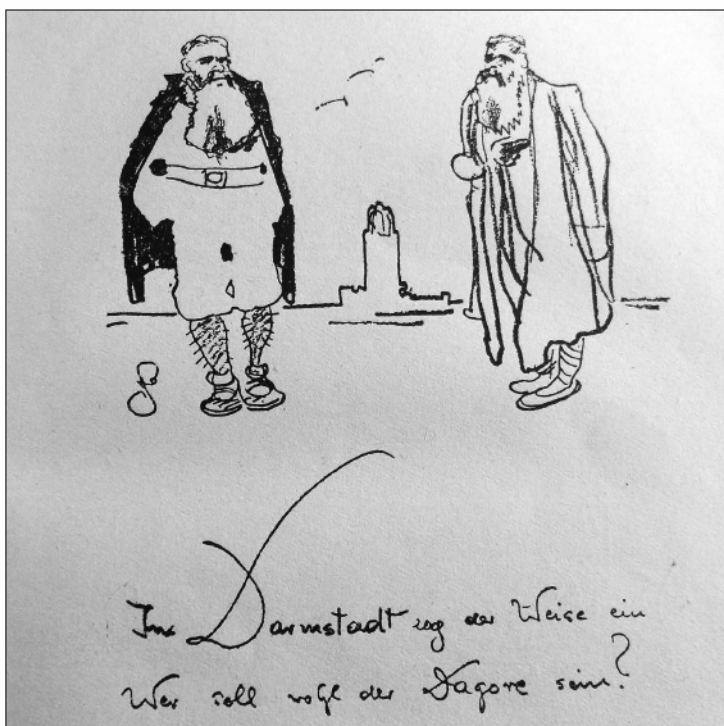 In Darmstadt zog der Weise ein
Wer soll wohl der Tagore sein?